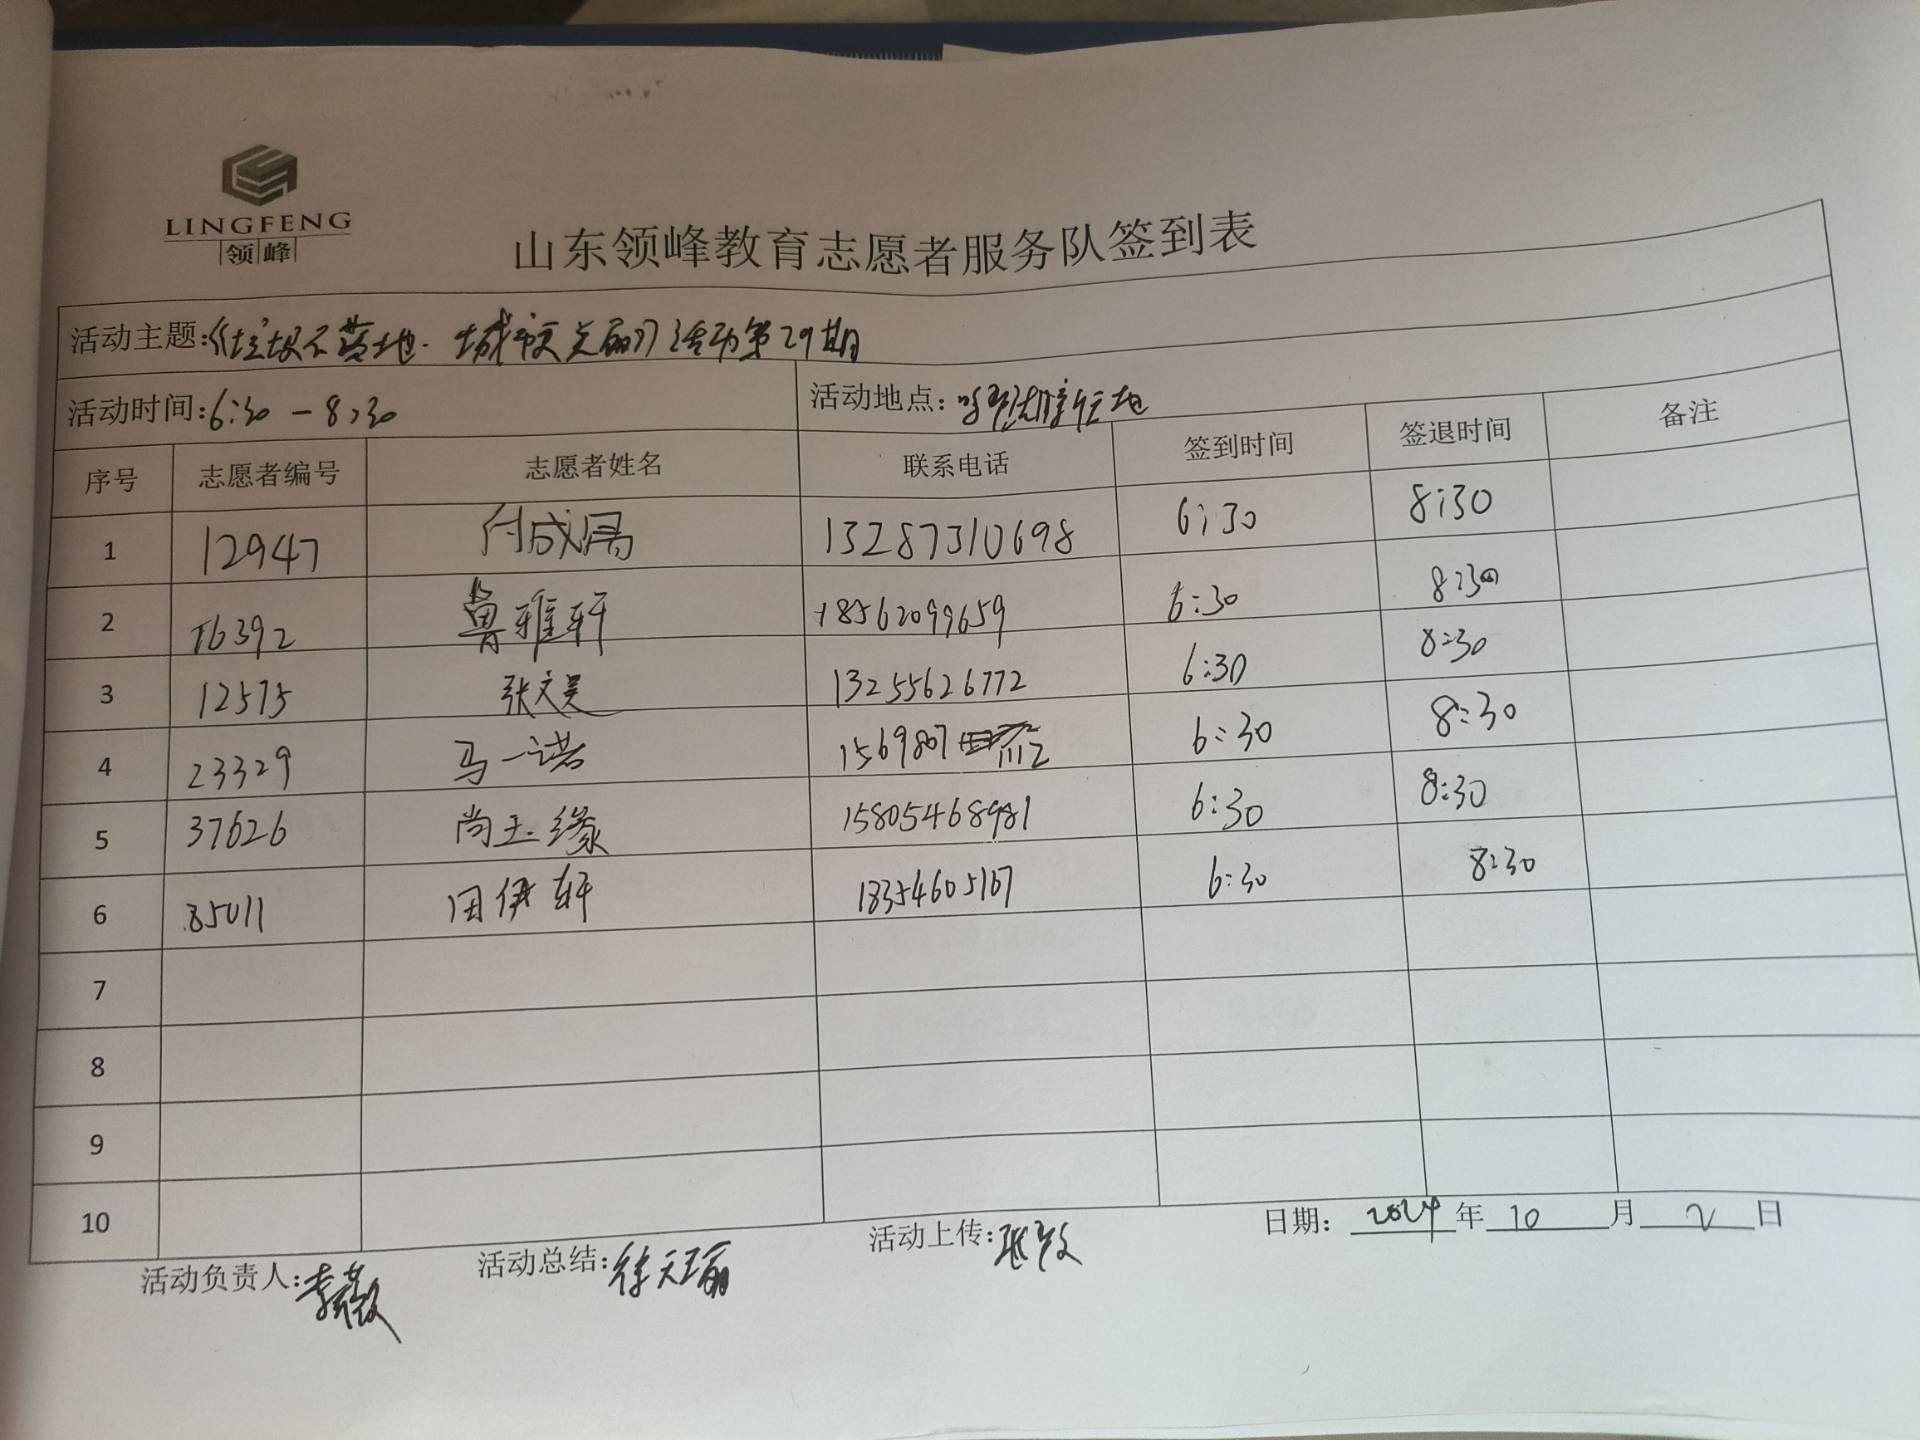 LINGFENG
领峰
山东领峰教育志愿者服务队签到表
活动主题:《垃圾不落地·城市更美丽》活动第29期
活动时间:6:30-8:30 活动地点:
序号 志愿者编号 志愿者姓名 联系电话 签到时间 签退时间 备注
1 12947 付成 13287310698 6:30 8:30
2 16392 鲁雅轩 18562099659 6:30 8:30
3 12575 张文昊 13255626772 6:30 8:30
4 23329 马一诺 1569807 1112 6:30 8:30
5 37626 尚玉缘 15805468981 6:30 8:30
6 85011 田伊轩 18354605167 6:30 8:30
7
8
9
10
活动负责人:李薇 活动总结:徐天瑜 活动上传: 日期: 2024年10月2日